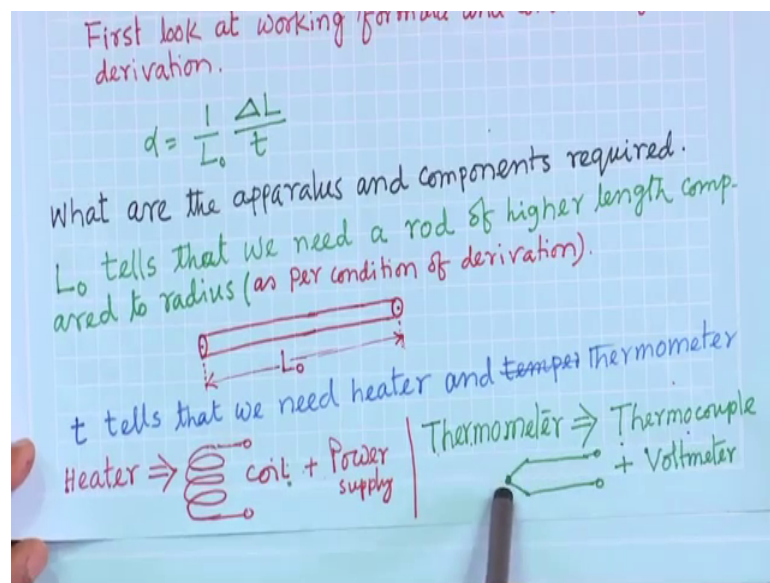 First look at working
derivation.
α = 1/L₀ ΔL/t
What are the apparatus and components required.
L₀ tells that we need a rod of higher length comp-
ared to radius (as per condition of derivation).
L₀
t tells that we need heater and temper Thermometer
Heater ⇒ coil + Power supply
Thermometer ⇒ Thermocouple
+ Voltmeter